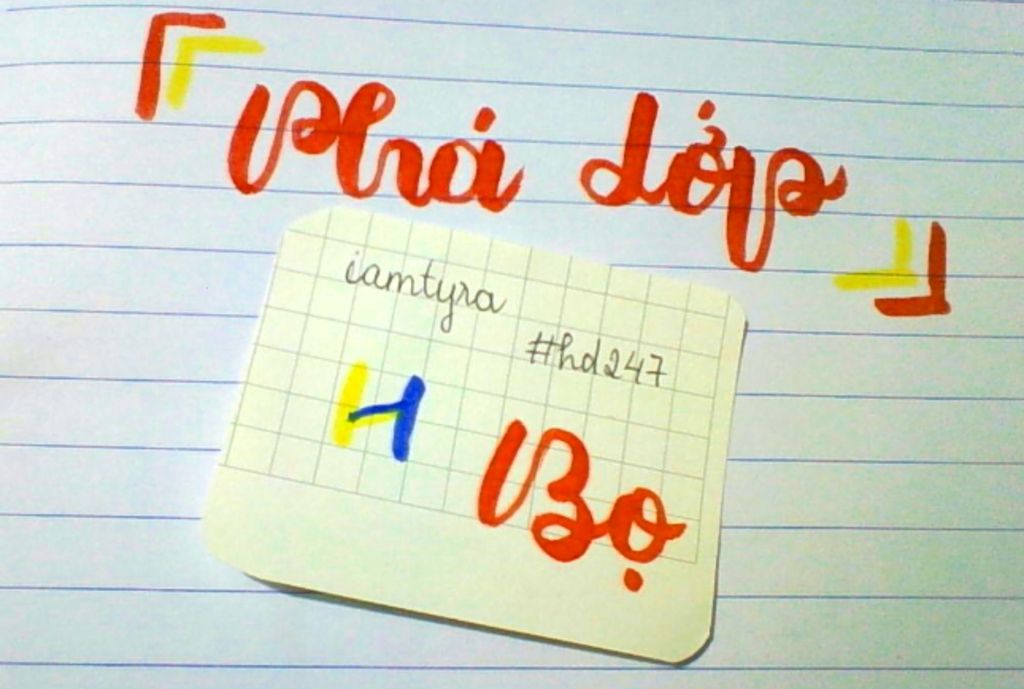 『Phá lớp』
iamtyra
#hd247
H
Bọ